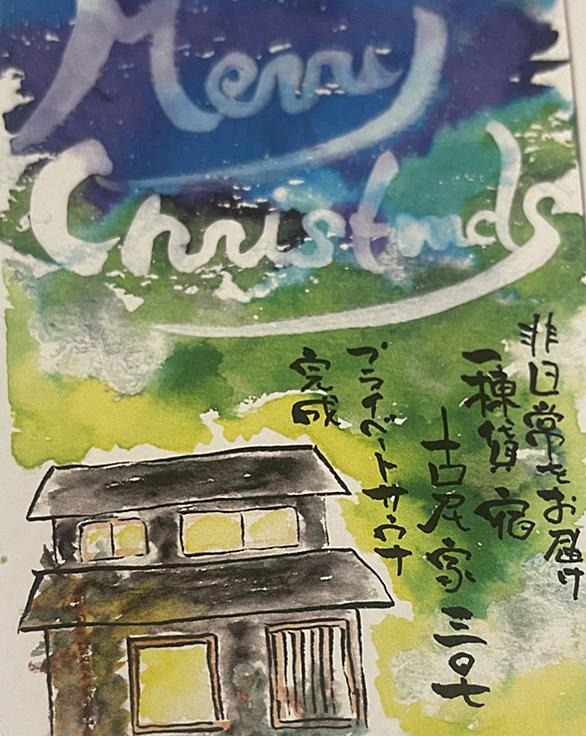 Merry
Christmas
非日常をお届け
一棟貸宿
古尾家三〇七
プライベートサウナ
完成